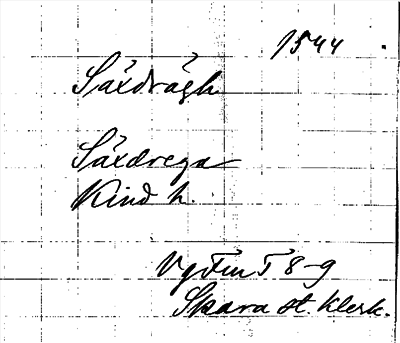 1544
Säxdrägh
Säxdrega
Kind h.
Vg Fin T 8-9
Skara st. Klerk.